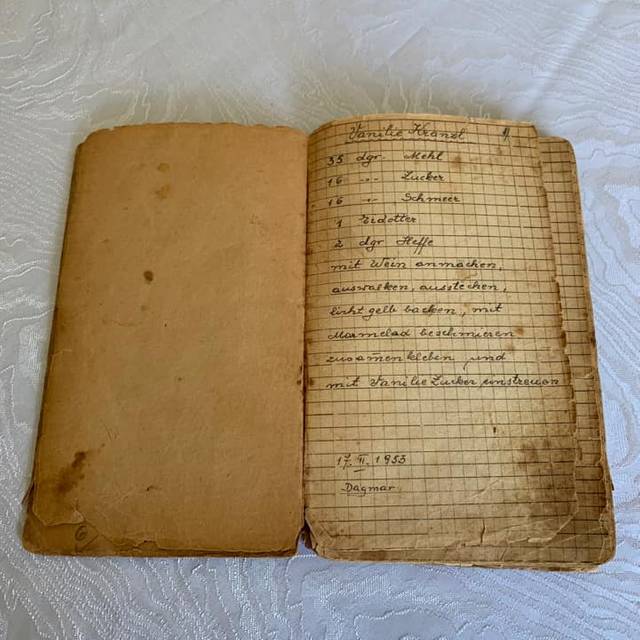 Vanilie Kranzl 1/
35 dgr. Mehl
16 -„- Zucker
16 -„- Schmeer
1 Eidotter
2 dgr Heffe
mit Wein anmachen,
auswalken, ausstechen,
licht gelb backen, mit
Marmelad beschmieren
zusam̄en kleben und
mit Vanilie Zucker
17. II. 1953
Dagmar
6